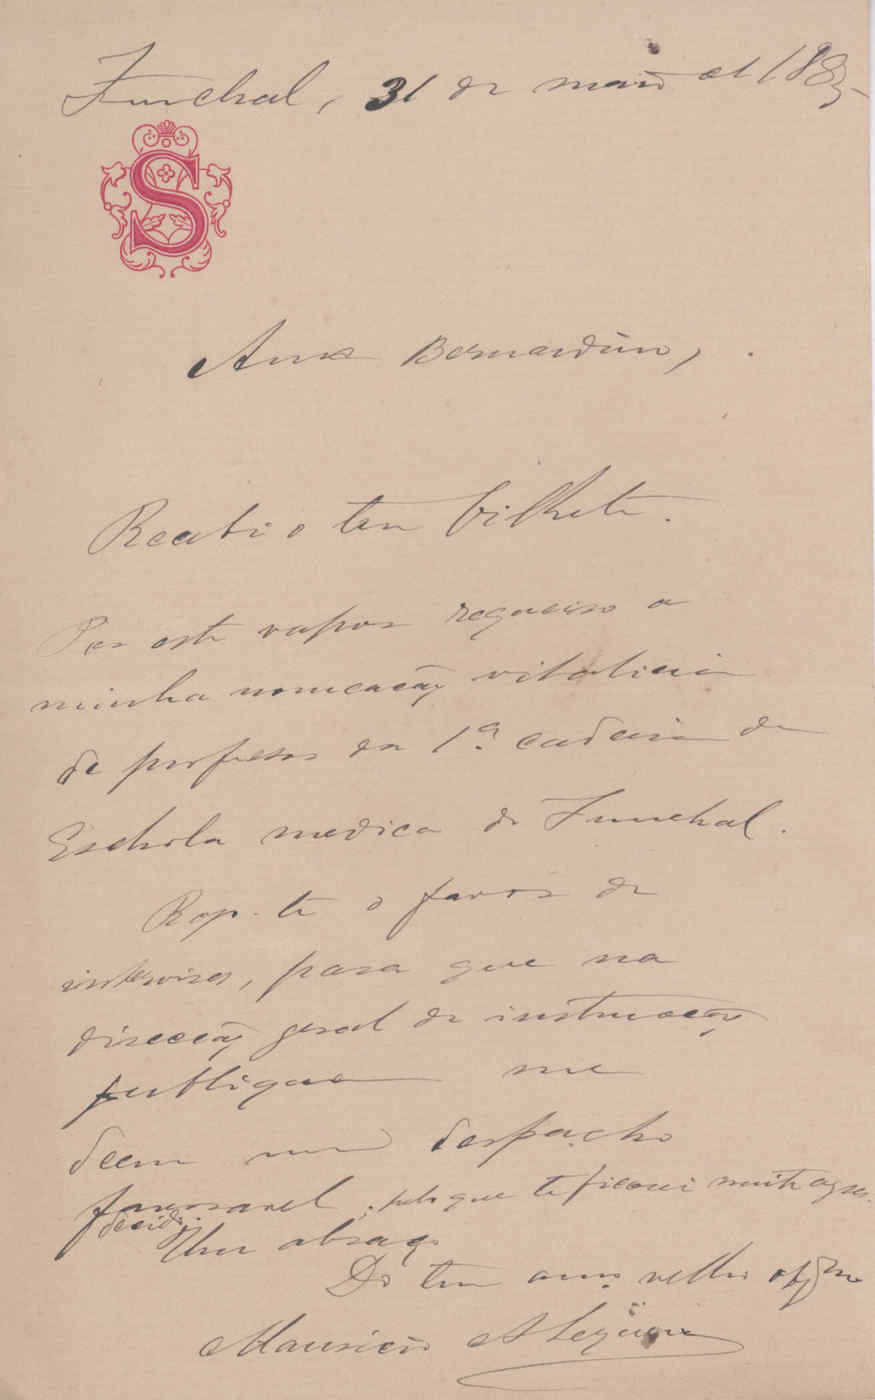 Funchal, 31 de maio de 1885
S
Amº Bernardino,
Recebi o teu bilhete.
Por este vapor requeiro a
minha nomeação vitalicia
de professor da 1ª cadeira da
Eschola medica do Funchal.
Rogo-te o favor de
intervires, para que na
direcção geral de instrucção
publica me
deem um despacho
favoravel, pelo que te ficarei muito agra-
decido.
Um abraço
Do teu amº velho
Mauricio A Sequeira